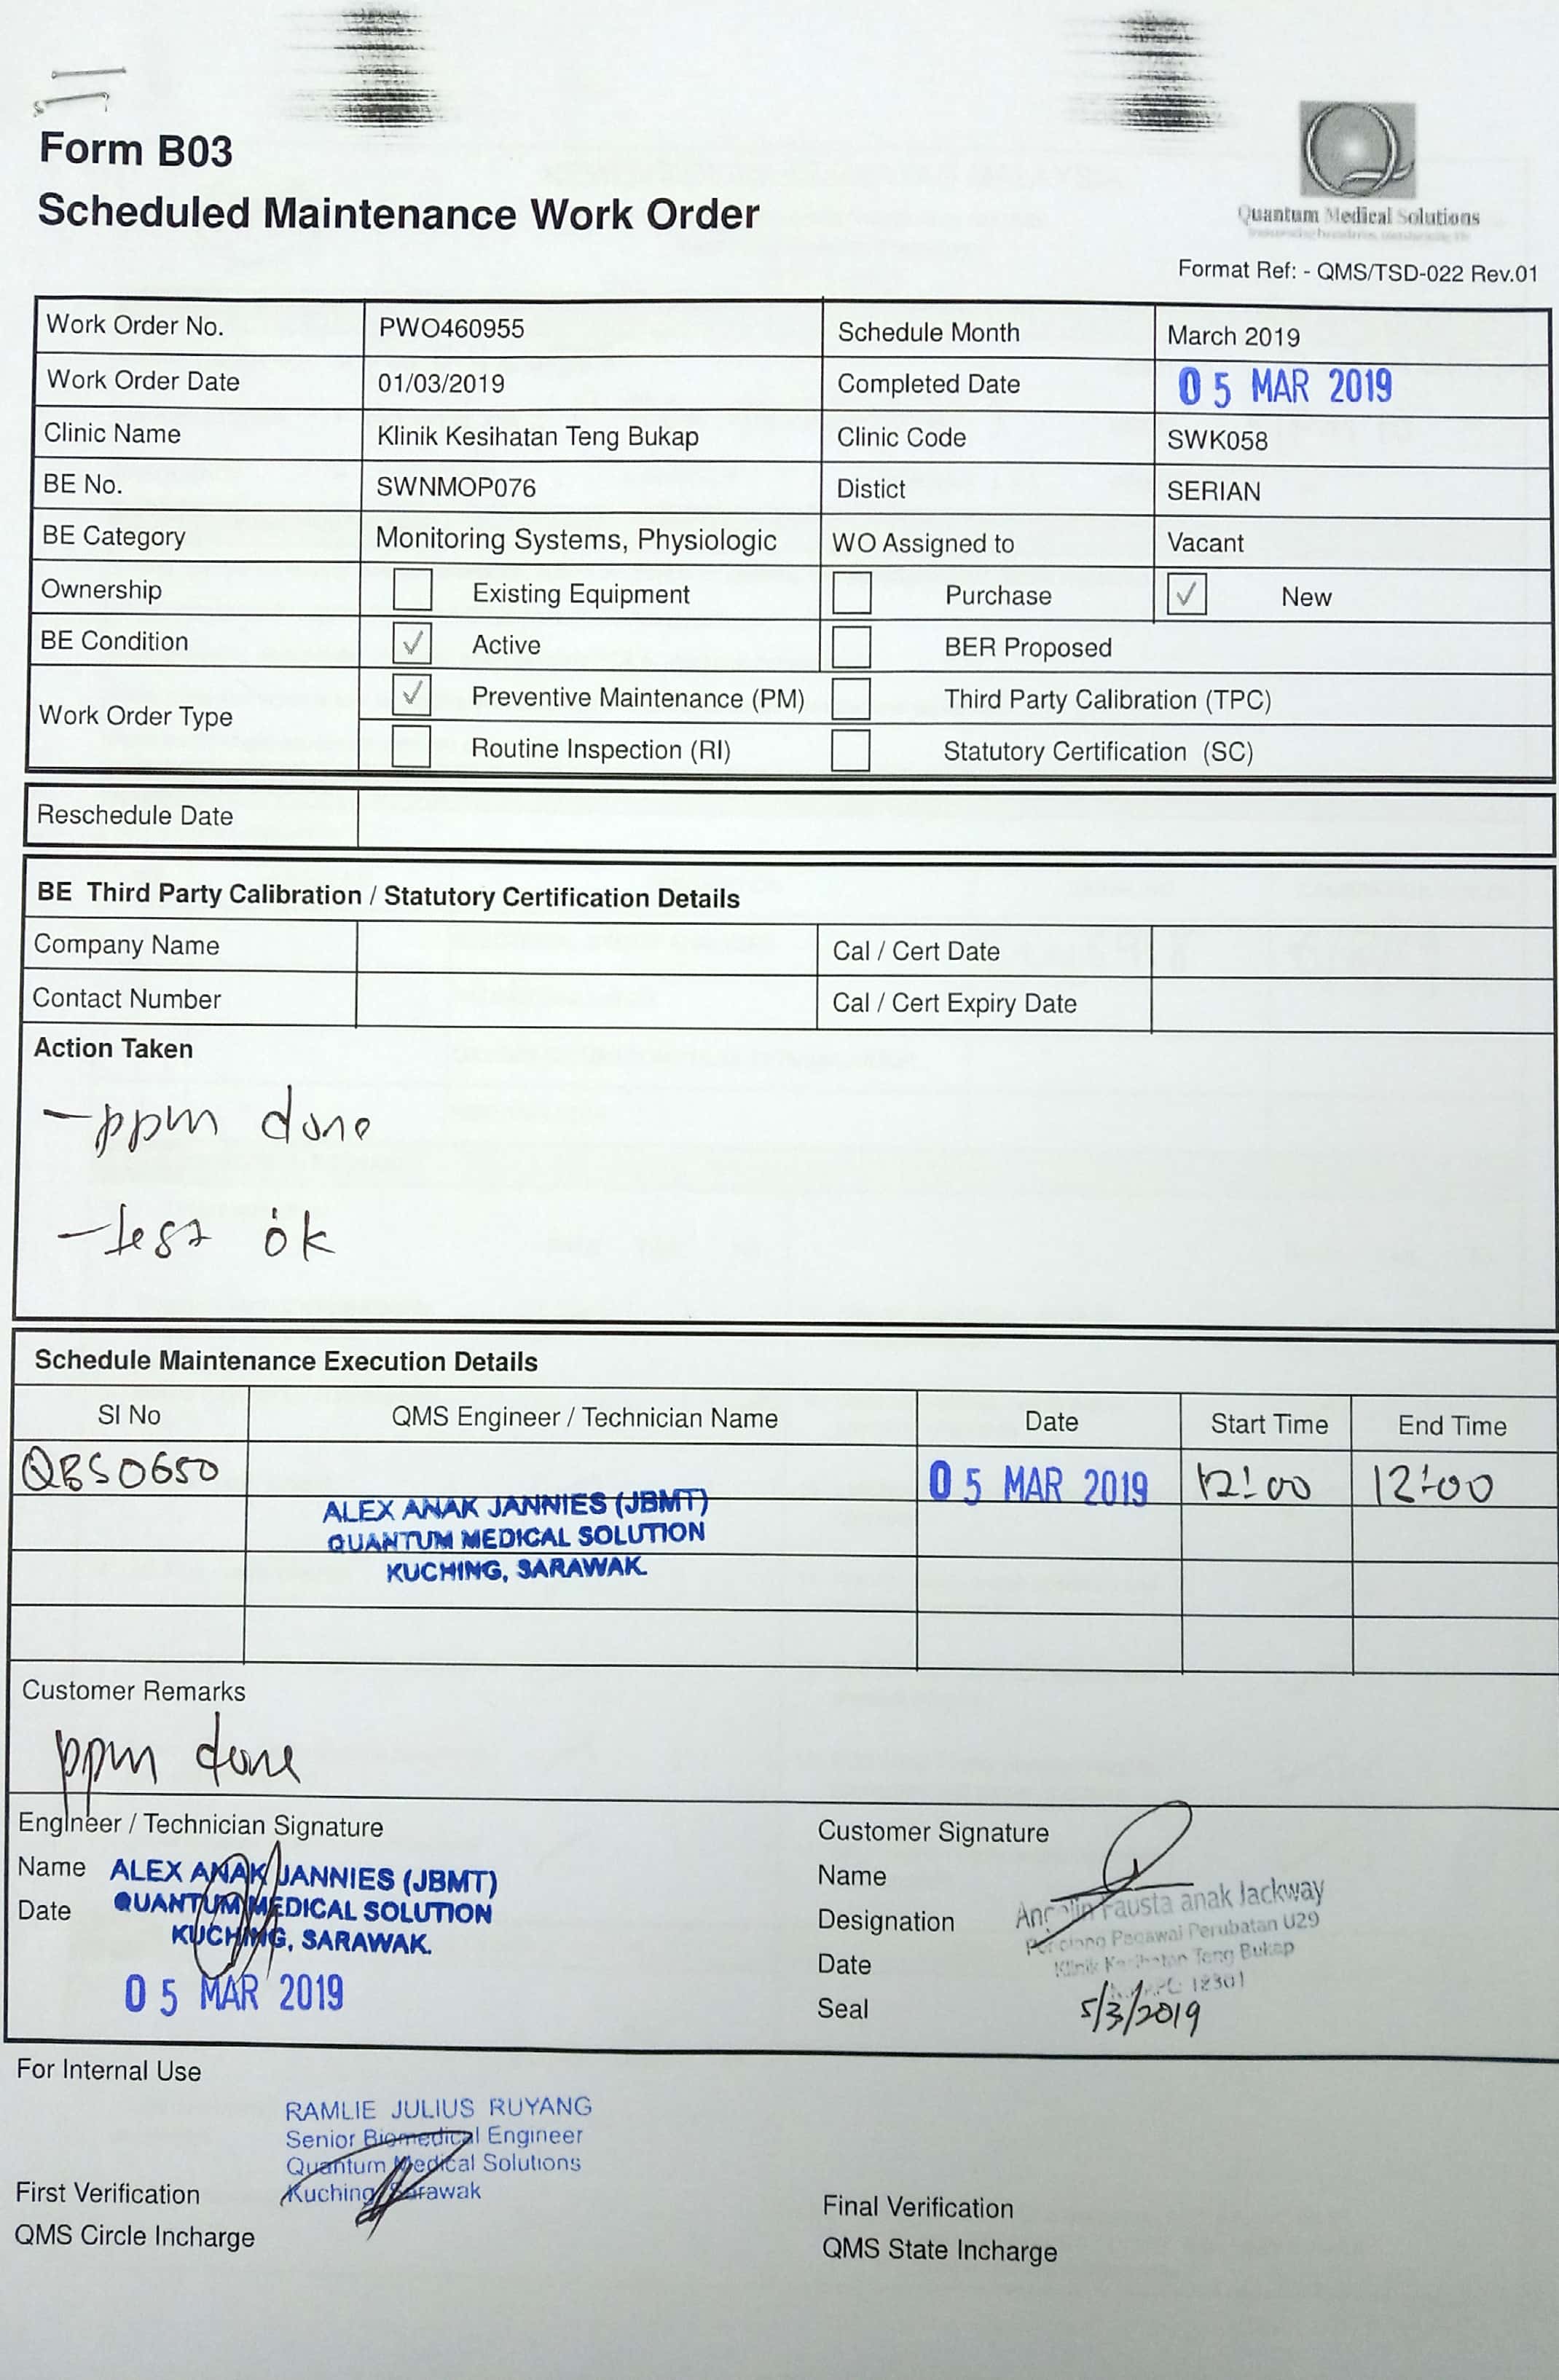 Form B03
Scheduled Maintenance Work Order
Quantum Medical Solutions
Format Ref: - QMS/TSD-022 Rev.01
Work Order No. PWO460955 Schedule Month March 2019
Work Order Date 01/03/2019 Completed Date 05 MAR 2019
Clinic Name Klinik Kesihatan Teng Bukap Clinic Code SWK058
BE No. SWNMOP076 Distict SERIAN
BE Category Monitoring Systems, Physiologic WO Assigned to Vacant
Ownership Existing Equipment Purchase ✓ New
BE Condition ✓ Active BER Proposed
Work Order Type ✓ Preventive Maintenance (PM) Third Party Calibration (TPC)
Routine Inspection (RI) Statutory Certification (SC)
Reschedule Date
BE Third Party Calibration / Statutory Certification Details
Company Name Cal / Cert Date
Contact Number Cal / Cert Expiry Date
Action Taken
- ppm done
- test ok
Schedule Maintenance Execution Details
SI No QMS Engineer / Technician Name Date Start Time End Time
QBS0650 05 MAR 2019 12:00 12:00
ALEX ANAK JANNIES (JBMT)
QUANTUM MEDICAL SOLUTION
KUCHING, SARAWAK.
Customer Remarks
ppm done
Engineer / Technician Signature
Name ALEX ANAK JANNIES (JBMT)
Date QUANTUM MEDICAL SOLUTION
KUCHING, SARAWAK.
05 MAR 2019
Customer Signature
Name
Designation Fausta anak Jackway
Perubatan U29
Date Klinik Kesihatan Teng Bukap
12301
Seal 5/3/2019
For Internal Use
RAMLIE JULIUS RUYANG
Senior Biomedical Engineer
Quantum Medical Solutions
Kuching Sarawak
First Verification
QMS Circle Incharge
Final Verification
QMS State Incharge